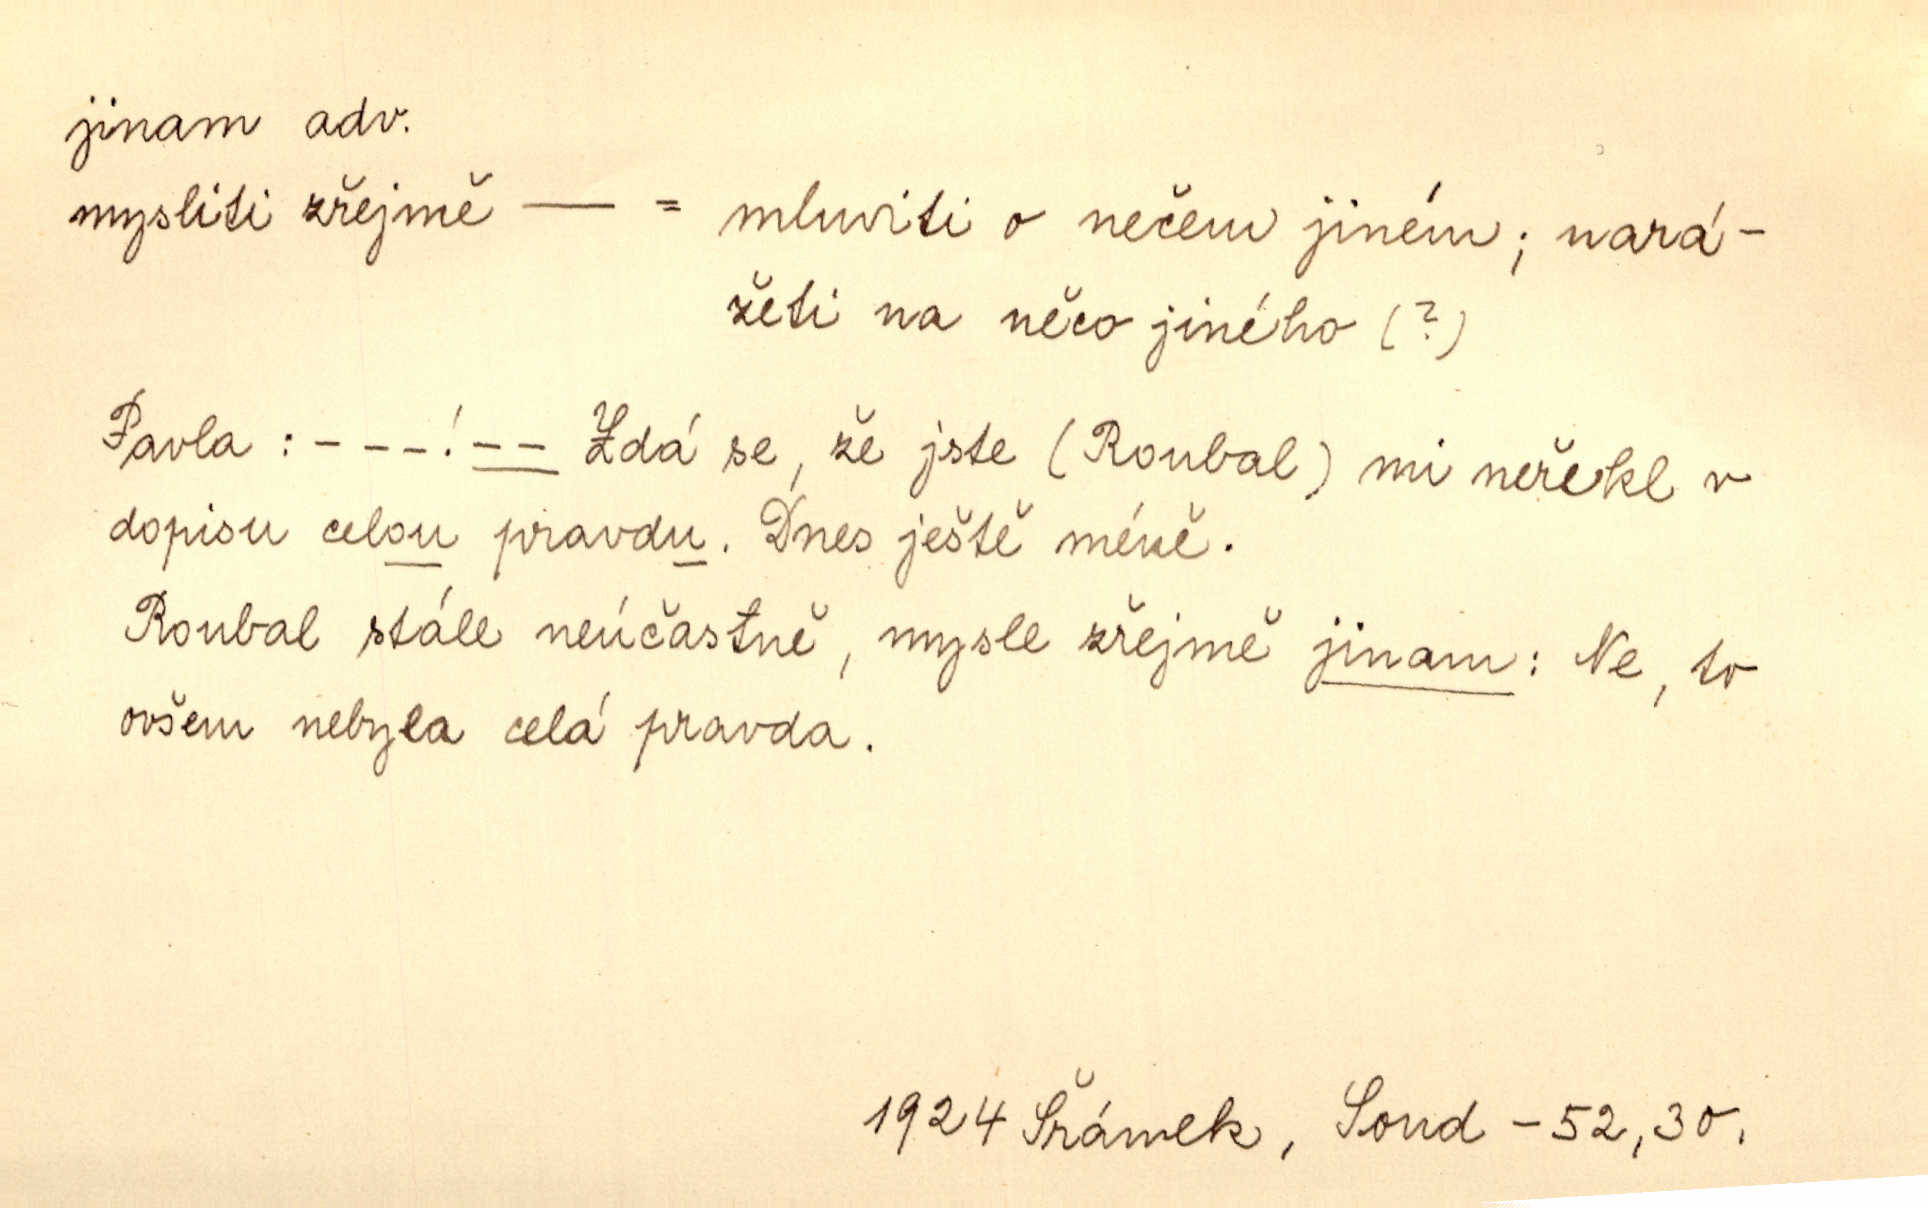 jinam adv.
mysliti zřejmě — = mluviti o nečem jiném; nará-
žeti na něco jiného (?)
Pavla : - - - ! - - Zdá se, že jste (Roubal) mi neřekl v
dopisu celou pravdu. Dnes ještě méně.
Roubal stále neúčastně, mysle zřejmě jinam: Ne, to
ovšem nebyla celá pravda.
1924 Šrámek, Soud - 52, 30.